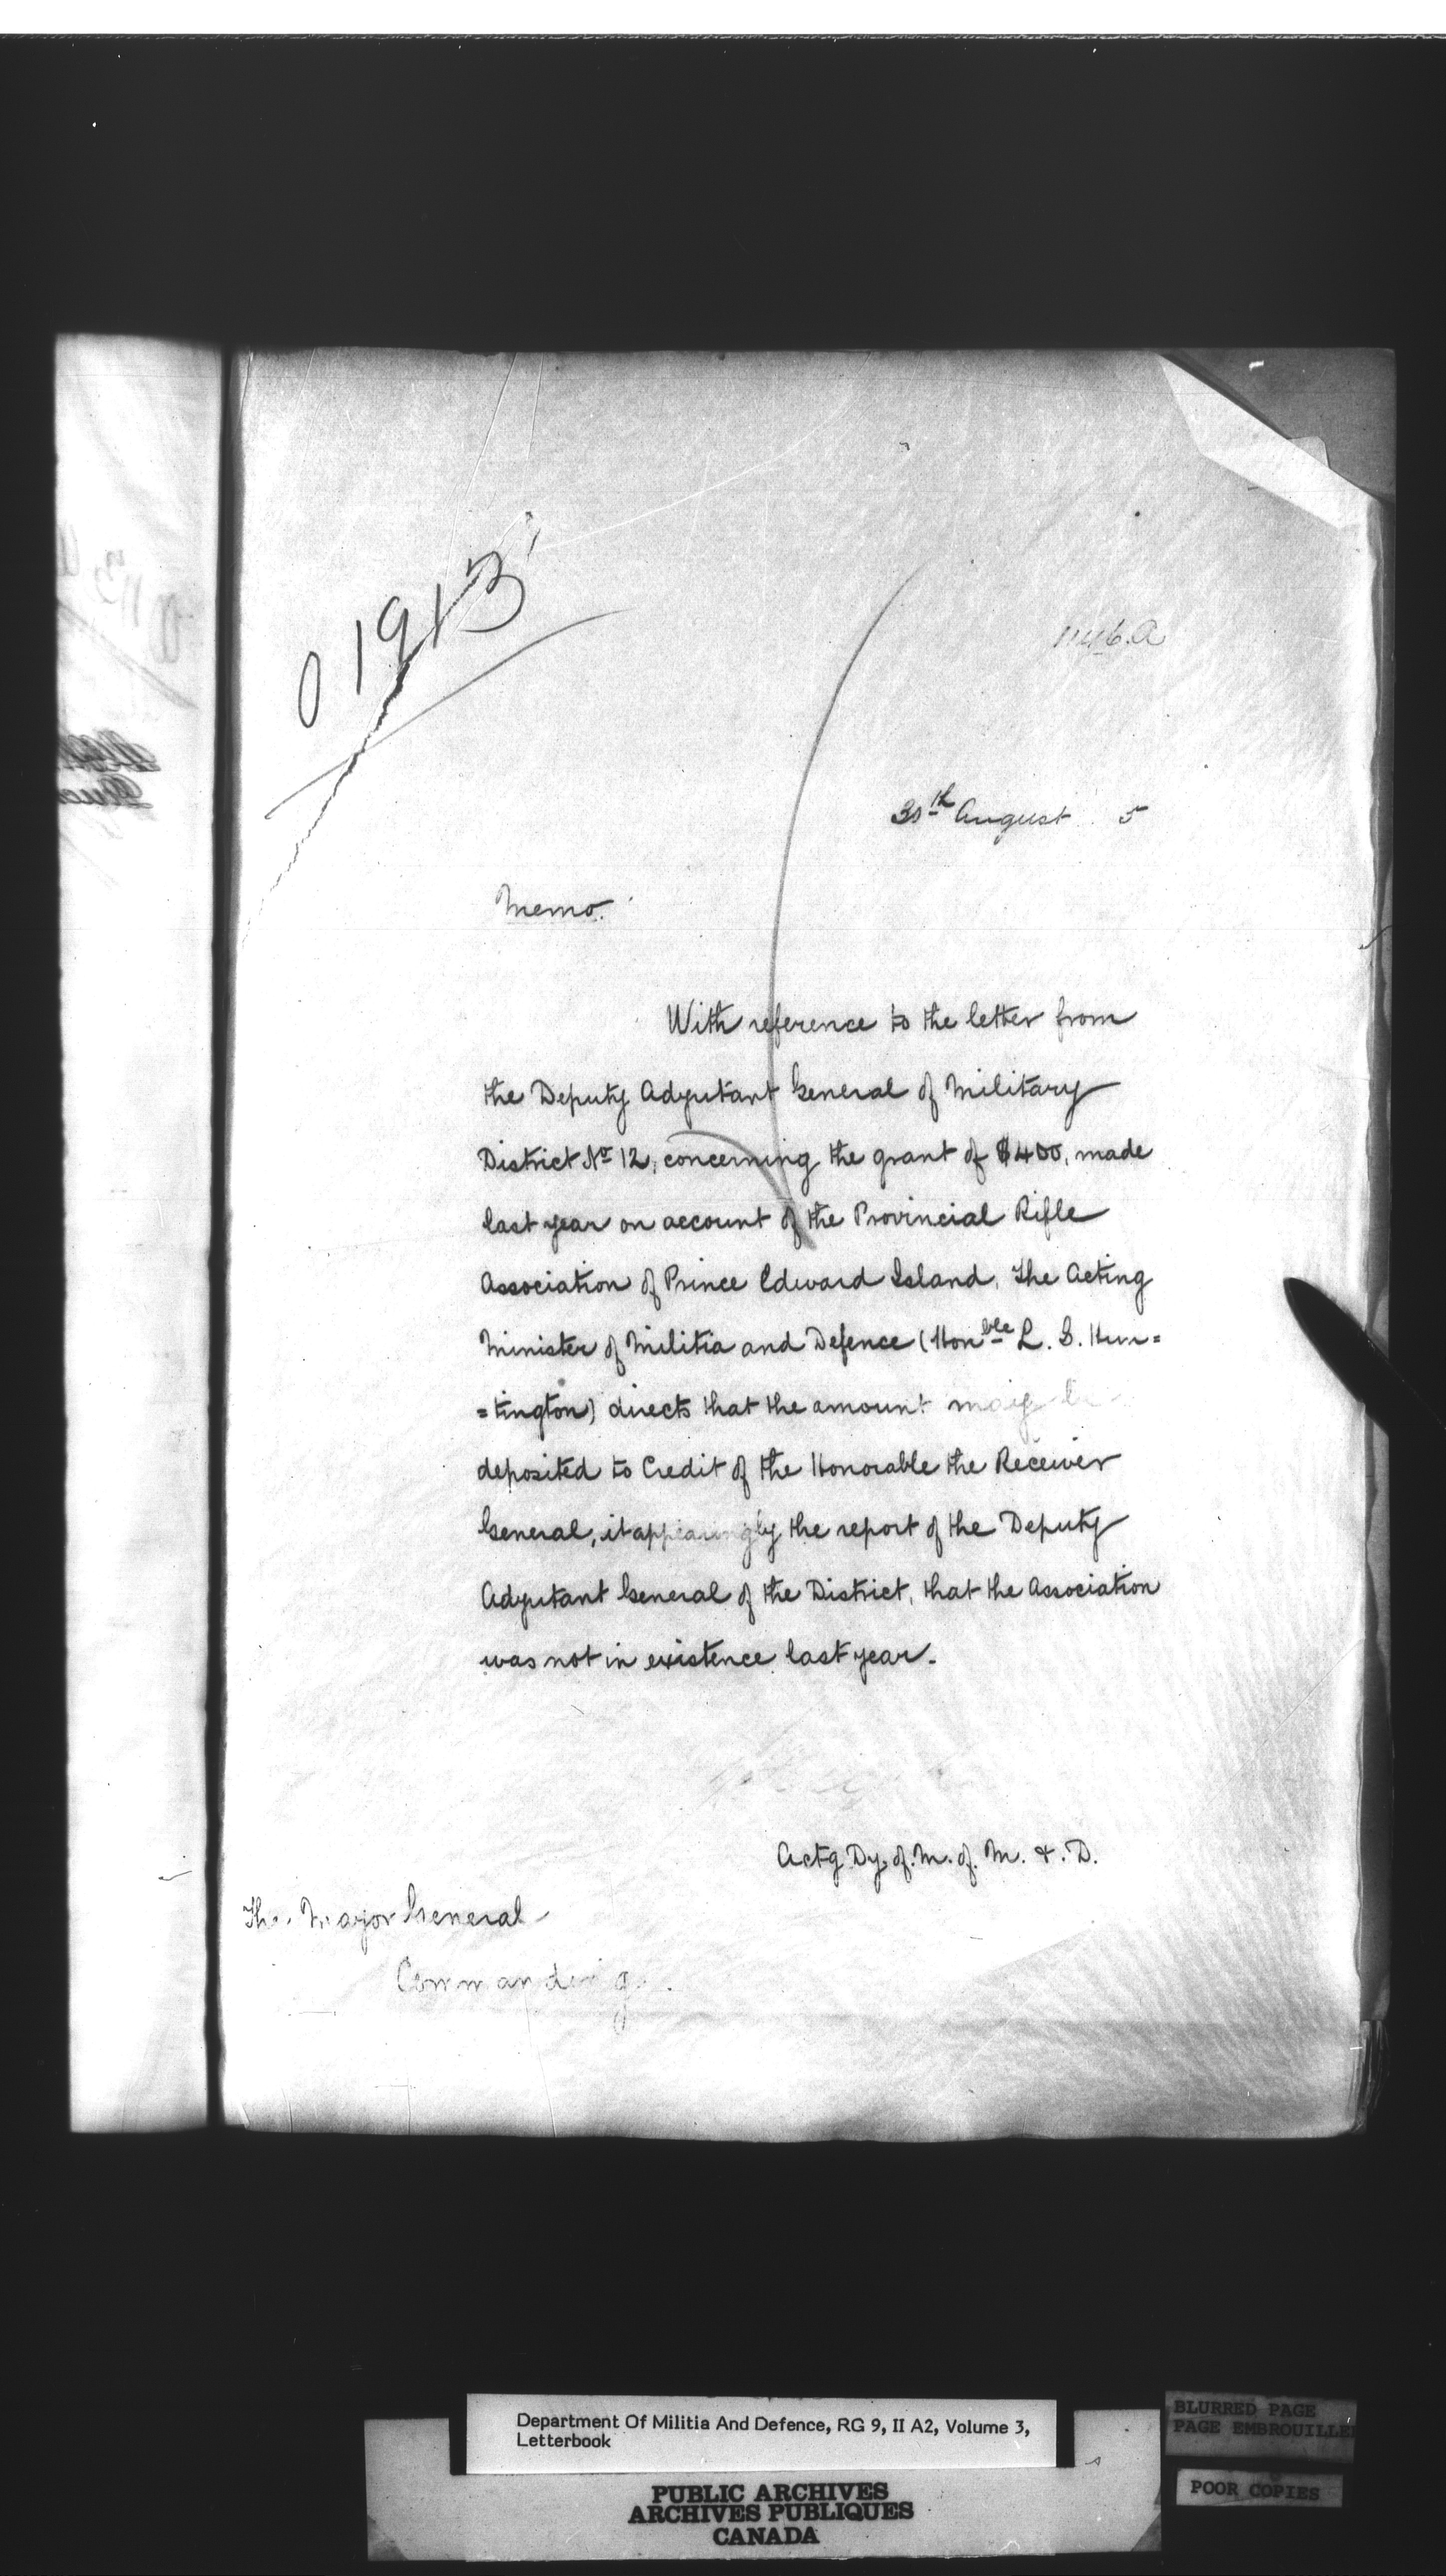 01913
1146.A
30th August 5
Memo.
With reference to the letter from
the Deputy Adjutant General of Military
District No 12, concerning the grant of $400, made
last year on account of the Provincial Rifle
Association of Prince Edward Island, the Acting
Minister of Militia and Defence (Honble L. S. Hun=
=tington) directs that the amount may be
deposited to Credit of the Honorable the Receiver
General, it appearing by the report of the Deputy
Adjutant General of the District, that the Association
was not in existence last year.
Actg Dy. of. M. of. M. & D.
The Major General
Commanding.
Department Of Militia And Defence, RG 9, II A2, Volume 3,
Letterbook
BLURRED PAGE
PAGE EMBROUILLEE
POOR COPIES
PUBLIC ARCHIVES
ARCHIVES PUBLIQUES
CANADA